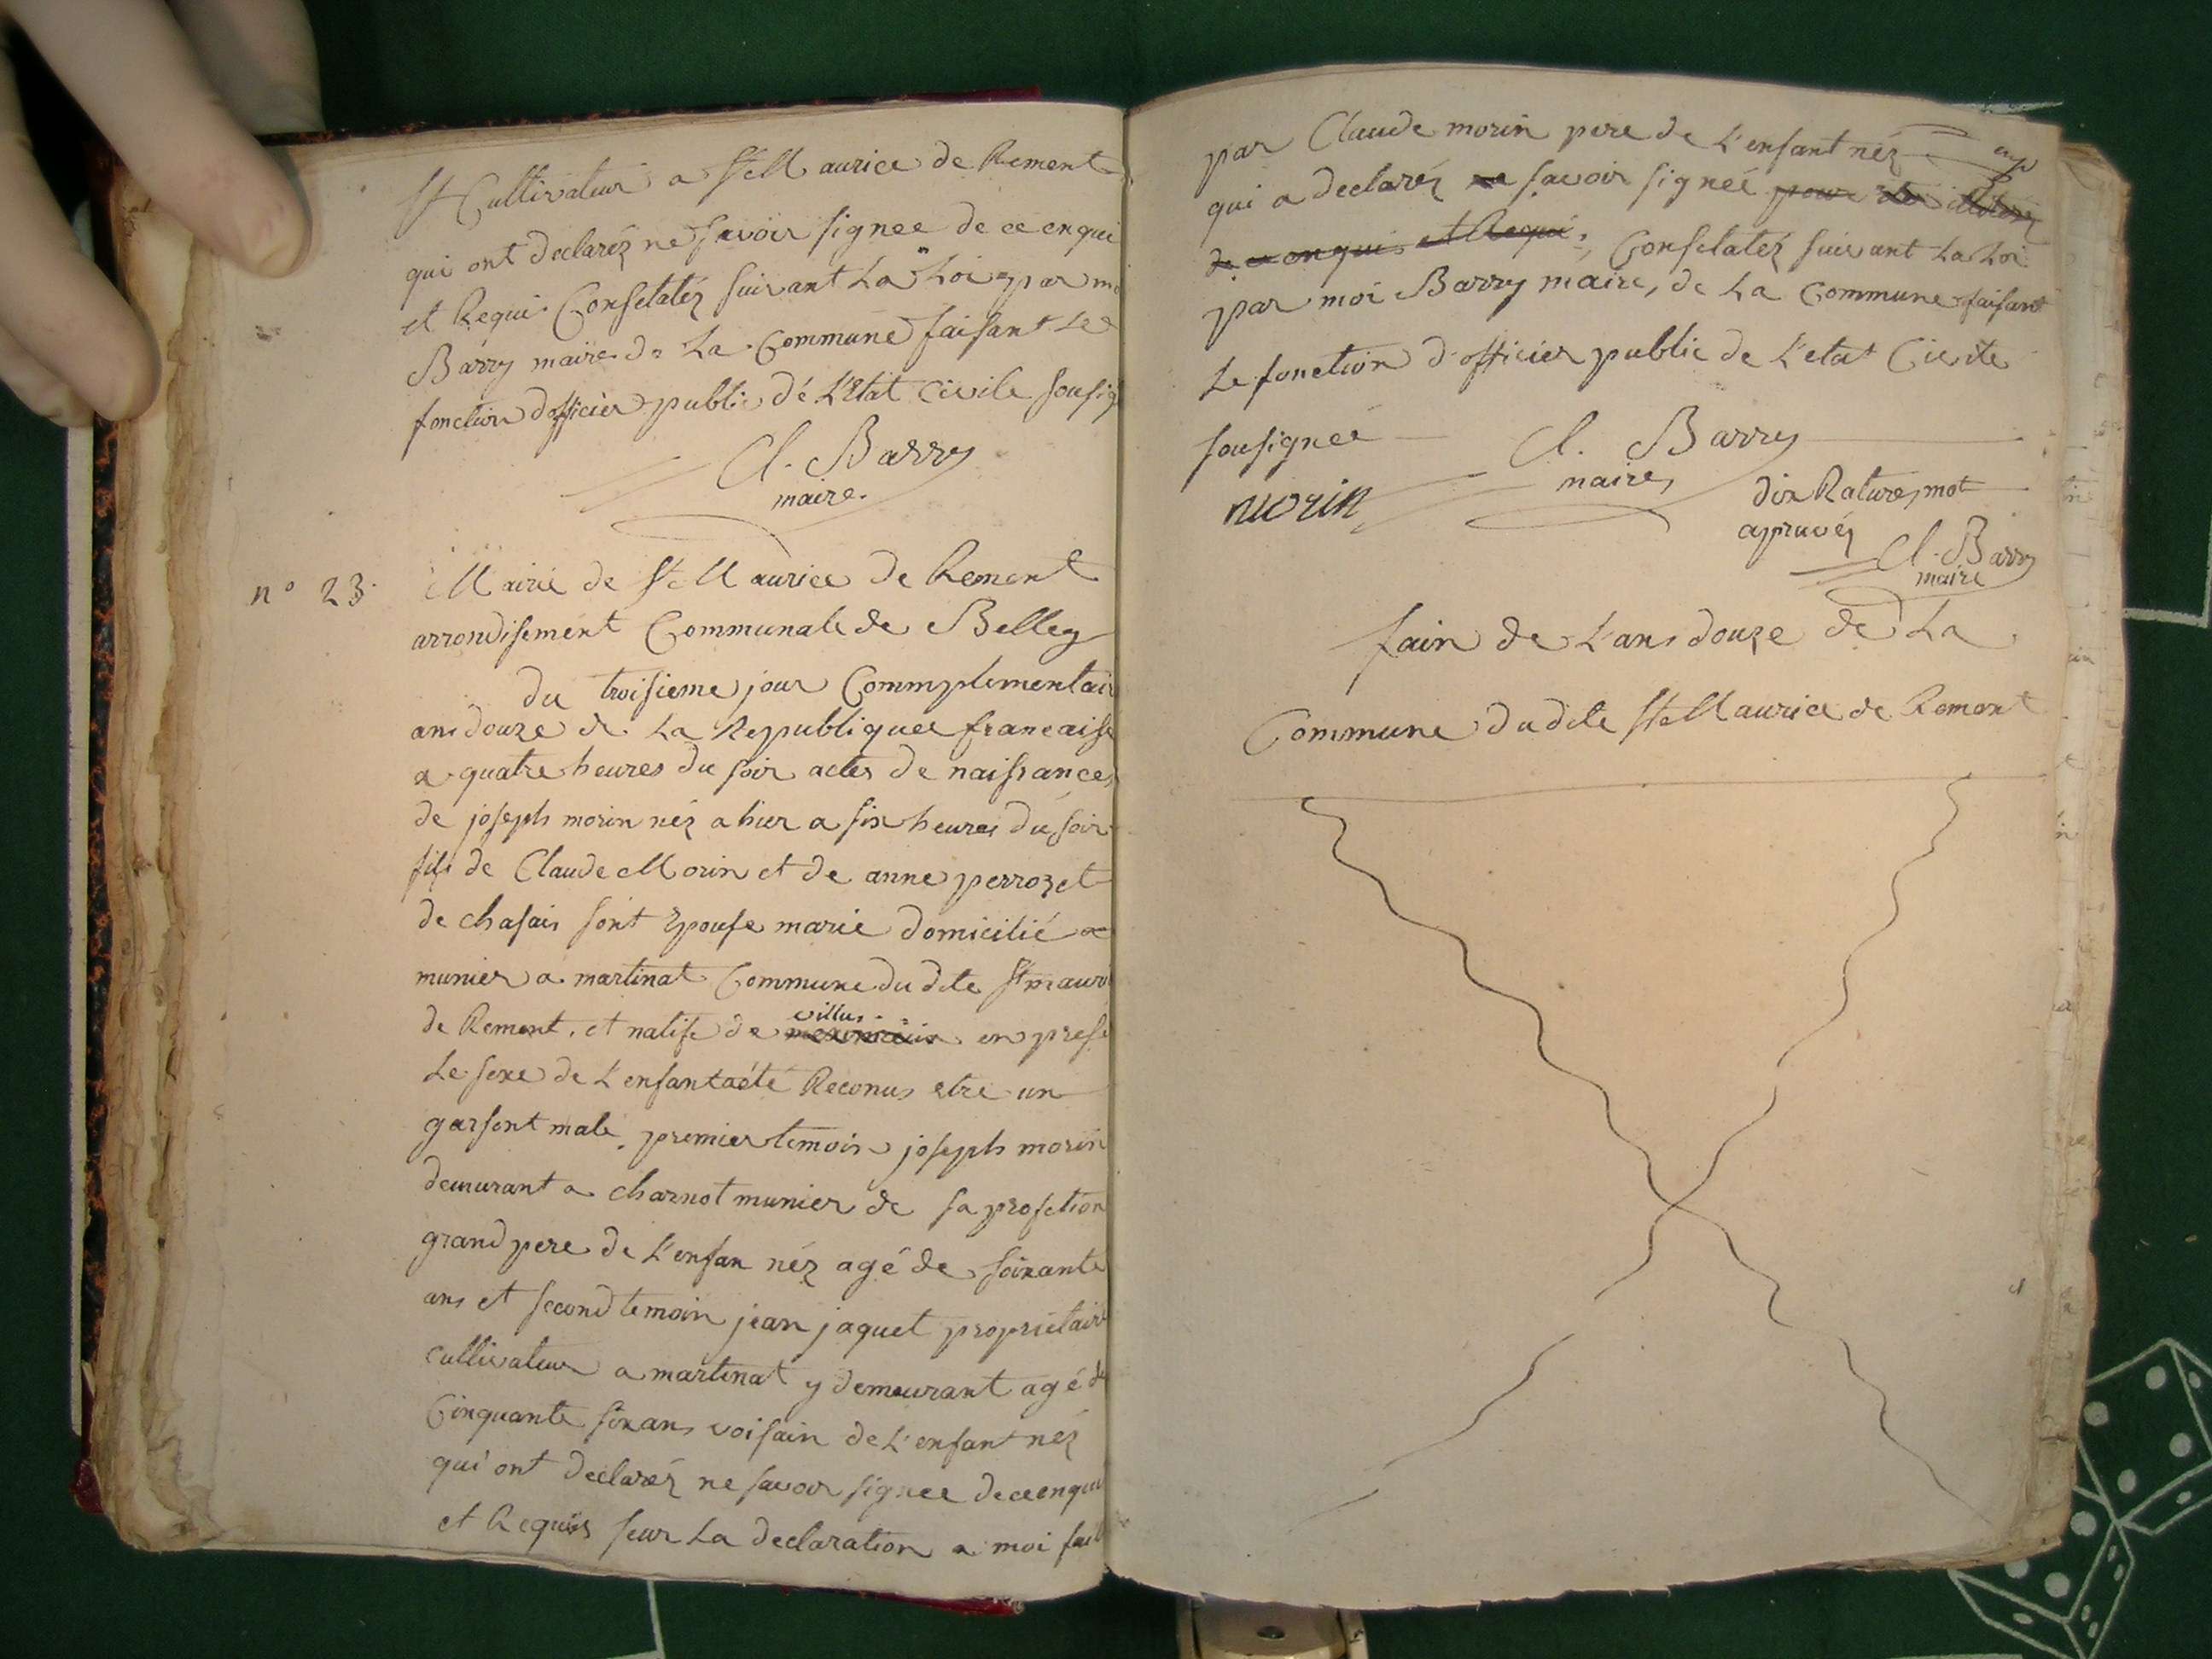 et Cultivateur a St Maurice de Rement
qui ont declaréz ne savoir signee de ce enqui
et Requi. Constatéz suivant La Loi par mo
Barry maire de La Commune faisant Le
fonction dofficier public dé L'Etat Civile sousig
Cl. Barry
maire.
n° 23. Mairie de St Maurice de Rement
arrondisement Communale de Belley
du troisieme jour Commplementair
ans douze de La Republiquee francaise
a quatre heures du soir actes de naissances
de joseph morin néz a hier a six heures du soir
fils de Claude Morin et de anne perrozet
de chasais sont Epouse marié domicilié a
munier a martinat Commune du dite St mauri
de Rement. et natife de villus en prese
Le sexe de L'enfant a été Reconus etre un
garsont male. premier temoin joseph morin
demurant a charnot munier de sa profetion
grand pere de L'enfan néz agé de soixante
ans et second temoin jean jaquet proprietaire
cultivateur a martinat y demeurant agé de
Cinquante six ans voisain de L'enfant néz
qui ont declaréz ne savoir signee de ce enqui
et Requis seur La declaration a moi fait
par Claude morin pere de L'enfant néz
qui a declaréz ne savoir signeé pour
de ce enquis et Requi. Constatéz suivant La Loi
par moi Barry maire, de La Commune faisant
Le fonction d'officier public de L'etat Civite
sousigneé Cl. Barry
maire
morin
dix Ratures mot
appruvéz
Cl. Barry
maire
fain de L'ans douze de La
Commune du dite St Maurice de Rement